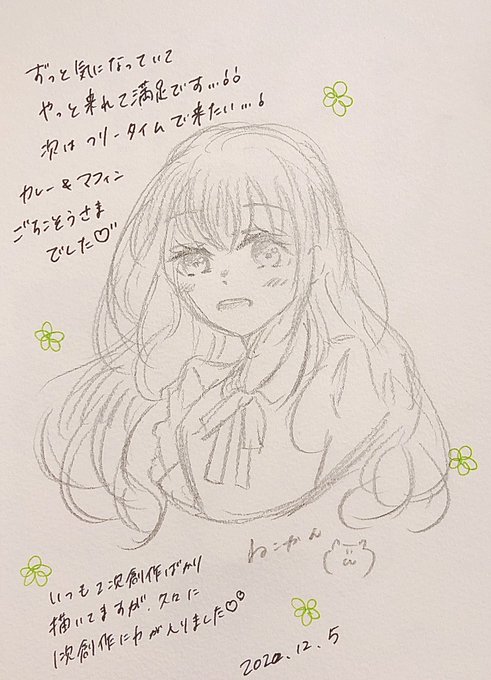 ずっと気になっていて
やっと来れて満足です…!!
次は フリータイムで来たい…!
カレー&マフィン
ごちそうさま
でした♡
ねこかん
いつも2次創作ばかり
描いてますが、久々に
1次創作に力が入りました♡
2020.12.5